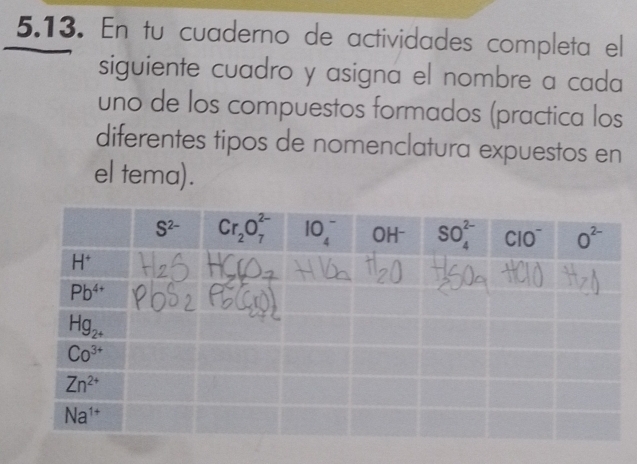 5.13. En tu cuaderno de actividades completa el
siguiente cuadro y asigna el nombre a cada
uno de los compuestos formados (practica los
diferentes tipos de nomenclatura expuestos en
el tema).
S²⁻ Cr₂O₇²⁻ IO₄⁻ OH⁻ SO₄²⁻ ClO⁻ O²⁻
H⁺ H₂S H₂O HClO H₂O
Pb⁴⁺ PbS₂
Hg₂₊
Co³⁺
Zn²⁺
Na¹⁺